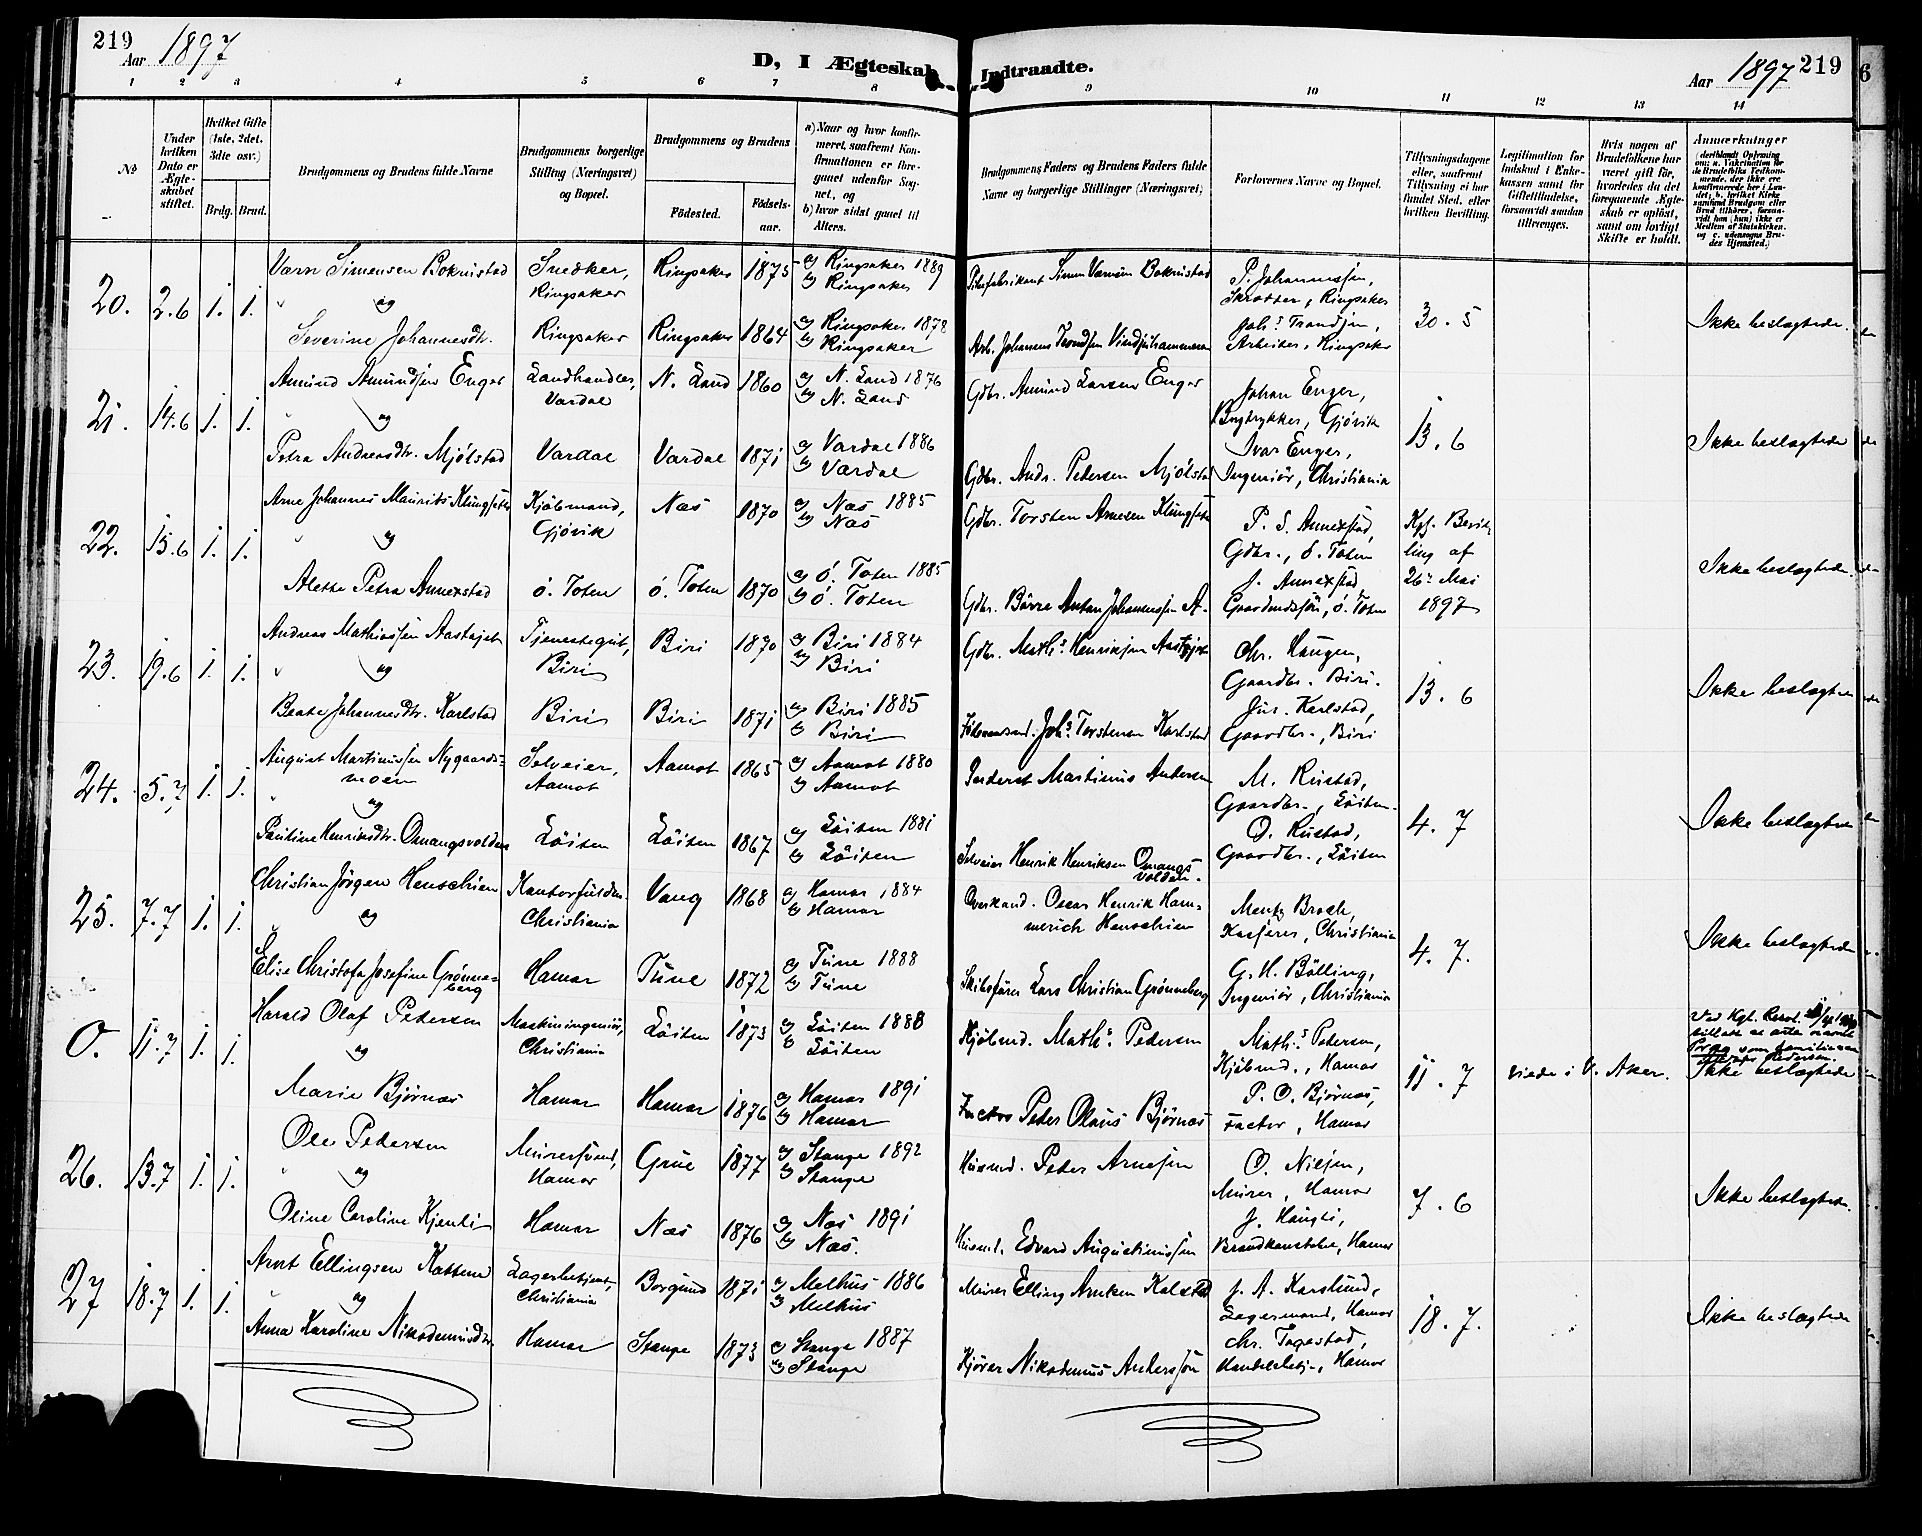 219
Aar 1897
D, I Ægteskab Indtraadte.
Aar 1897 219
1 2 3 4 5 6 7 8 9 10 11 12 13 14
No
Under hvilken Dato er Ægteskabet stiftet.
Hvilket Gifte (1ste, 2det, 3die osv.)
Brdg. Brud.
Brudgommens og Brudens fulde Navne
Brudgommens borgerlige Stilling (Næringsvei) og Bopæl.
Brudgommens og Brudens
Fødested.
Fødselsaar.
a) Naar og hvor konfirmeret, saafremt Konfirmationen er foregaaet udenfor Sognet, og
b) hvor sidst gaaet til Alters.
Brudgommens Faders og Brudens Faders fulde Navne og borgerlige Stillinger (Næringsvei)
Forlovernes Navne og Bopæl.
Tillysningsdagene eller, saafremt Tillysning ei har fundet Sted, efter hvilken Bevilling.
Legitimation for Indskud i Enkekassen samt for Giftetilladelse, forsaavidt saadan tiltrænges.
Hvis nogen af Brudefolkene har været gift før, hvorledes da det foregaaende Ægteskab er opløst, samt om lovligt Skifte er holdt.
Anmærkninger
20. 2.6 1. 1.
Simensen Boknistad Snedker, Ringsaker Ringsaker 1875 a) Ringsaker 1889 b) Ringsaker
P. Johannessen, Ringsaker
og
Severine Johannesdtr. Ringsaker Ringsaker 1864 a) Ringsaker 1878 b) Ringsaker
Arb. Johannes
Arbeider, Ringsaker
30.5
Ikke beslægtede.
21. 14.6 1. 1.
Amund Amundsen Enger Landhandler, Vardal N. Land 1860 a) N. Land 1876 b) N. Land
Gdbr. Amund Larsen Enger
Johan Enger, Bogtrykker, Gjøvik
og
Petra Andreasdtr. Mjølstad Vardal Vardal 1871 a) Vardal 1886 b) Vardal
Gdbr. Andr. Pedersen Mjølstad
Ivar Enger, Ingeniør, Christiania
13.6
Ikke beslægtede
22. 15.6 1. 1.
Arne Johannes Maurits Klungseth Kjøbmand, Gjøvik Næs 1870 a) Næs 1885 b) Næs
Gdbr. Torsten Arnesen Klungseth
P. S. Annexstad, Gdbr., Ø. Toten
og
Alette Petra Annexstad Ø. Toten Ø. Toten 1870 a) Ø. Toten 1885 b) Ø. Toten
Gdbr. Børre Anton Johannessen A.
J. Annexstad, Ø. Toten
Kgl. Bevilling af 26de Mai 1897
Ikke beslægtede.
23. 19.6 1. 1.
Andreas Mathiassen Tjenestegut, Biri Biri 1870 a) Biri 1884 b) Biri
Gdbr. Maths Henriksen
Chr. Haugen, Gaardbr. Biri.
og
Beate Johannesdtr. Karlstad Biri Biri 1871 a) Biri 1885 b) Biri
Johs Torstensen Karlstad
Karlstad, Gaardbr., Biri
13.6
Ikke beslægtede
24. 5.7 1. 1.
August Martinussen Nygaardsmoen Selveier, Aamot Aamot 1865 a) Aamot 1880 b) Aamot
Martinus Andersen
M. Rustad, Gaardbr., Løiten.
og
Pauline Henriksdtr. Omangsvolden Løiten Løiten 1867 a) Løiten 1881 b) Løiten
Selveier Henrik Henriksen Omangsvolden.
O. Rustad, Gaardbr., Løiten
4.7
Ikke beslægtede
25. 7.7 1. 1.
Christian Jörgen Henschien Christiania Vang 1868 a) Hamar 1884 b) Hamar
Oscar Henrik Hammerich Henschien
Mentz Broch, Kasserer, Christiania
og
Elise Christofa Josefine Grønneberg Hamar Tune 1872 a) Tune 1888 b) Tune
Skibsfører Lars Christian Grønneberg
G. H. Bölling, Ingeniør, Christiania
4.7.
Ikke beslægtede
0. 11.7 1. 1.
Harald Olaf Pedersen Maskiningeniør, Christiania Løiten 1873 a) Løiten 1888 b) Løiten
Kjøbmd. Maths Pedersen
Maths Pedersen, Kjøbmd., Hamar
og
Marie Bjørnas Hamar Hamar 1876 a) Hamar 1891 b) Hamar
Factor Peder Olaus Bjørnas
P. O. Bjørnas, Factor, Hamar
11.7
viede i V. Aker.
Ikke beslægtede
26. 13.7 1. 1.
Ole Pedersen Murersvend, Hamar Grue 1877 a) Stange 1892 b) Stange
Husmd. Peder Arnesen
O. Nilsen, Murer, Hamar
og
Oline Caroline Kjenli Hamar Næs 1876 a) Næs 1891 b) Næs.
Husmd. Edvard Augustinussen
J. Haugli, Brandkonstabel, Hamar
7.6
Ikke beslægtede.
27 18.7 1. 1.
Arnt Ellingsen Kattem Lagerbetjent, Christiania Borgund 1871 a) Melhus 1886 b) Melhus
Murer Elling
J. A. Karslund, Lagermand, Hamar
og
Anna Karoline Nikodemusdtr. Hamar Stange 1873 a) Stange 1887 b) Stange
Kjører Nikodemus Anderssön
Chr. Tagestad, Handelsbetj., Hamar
18.7.
Ikke beslægtede